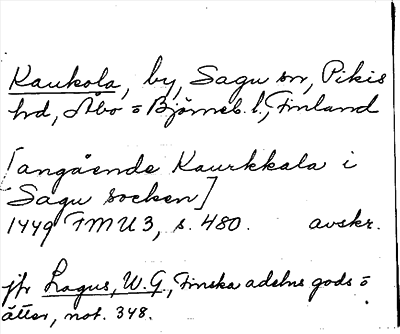 Kaukola, by, Sagu sn, Pikis
hrd, Åbo o Björneb. l., Finland
[angående Kaurkkala i
Sagu socken]
1449 FMU3, s. 480. avskr.
jfr Lagus, W.G., Finska adelns gods o
ätter, not. 348.